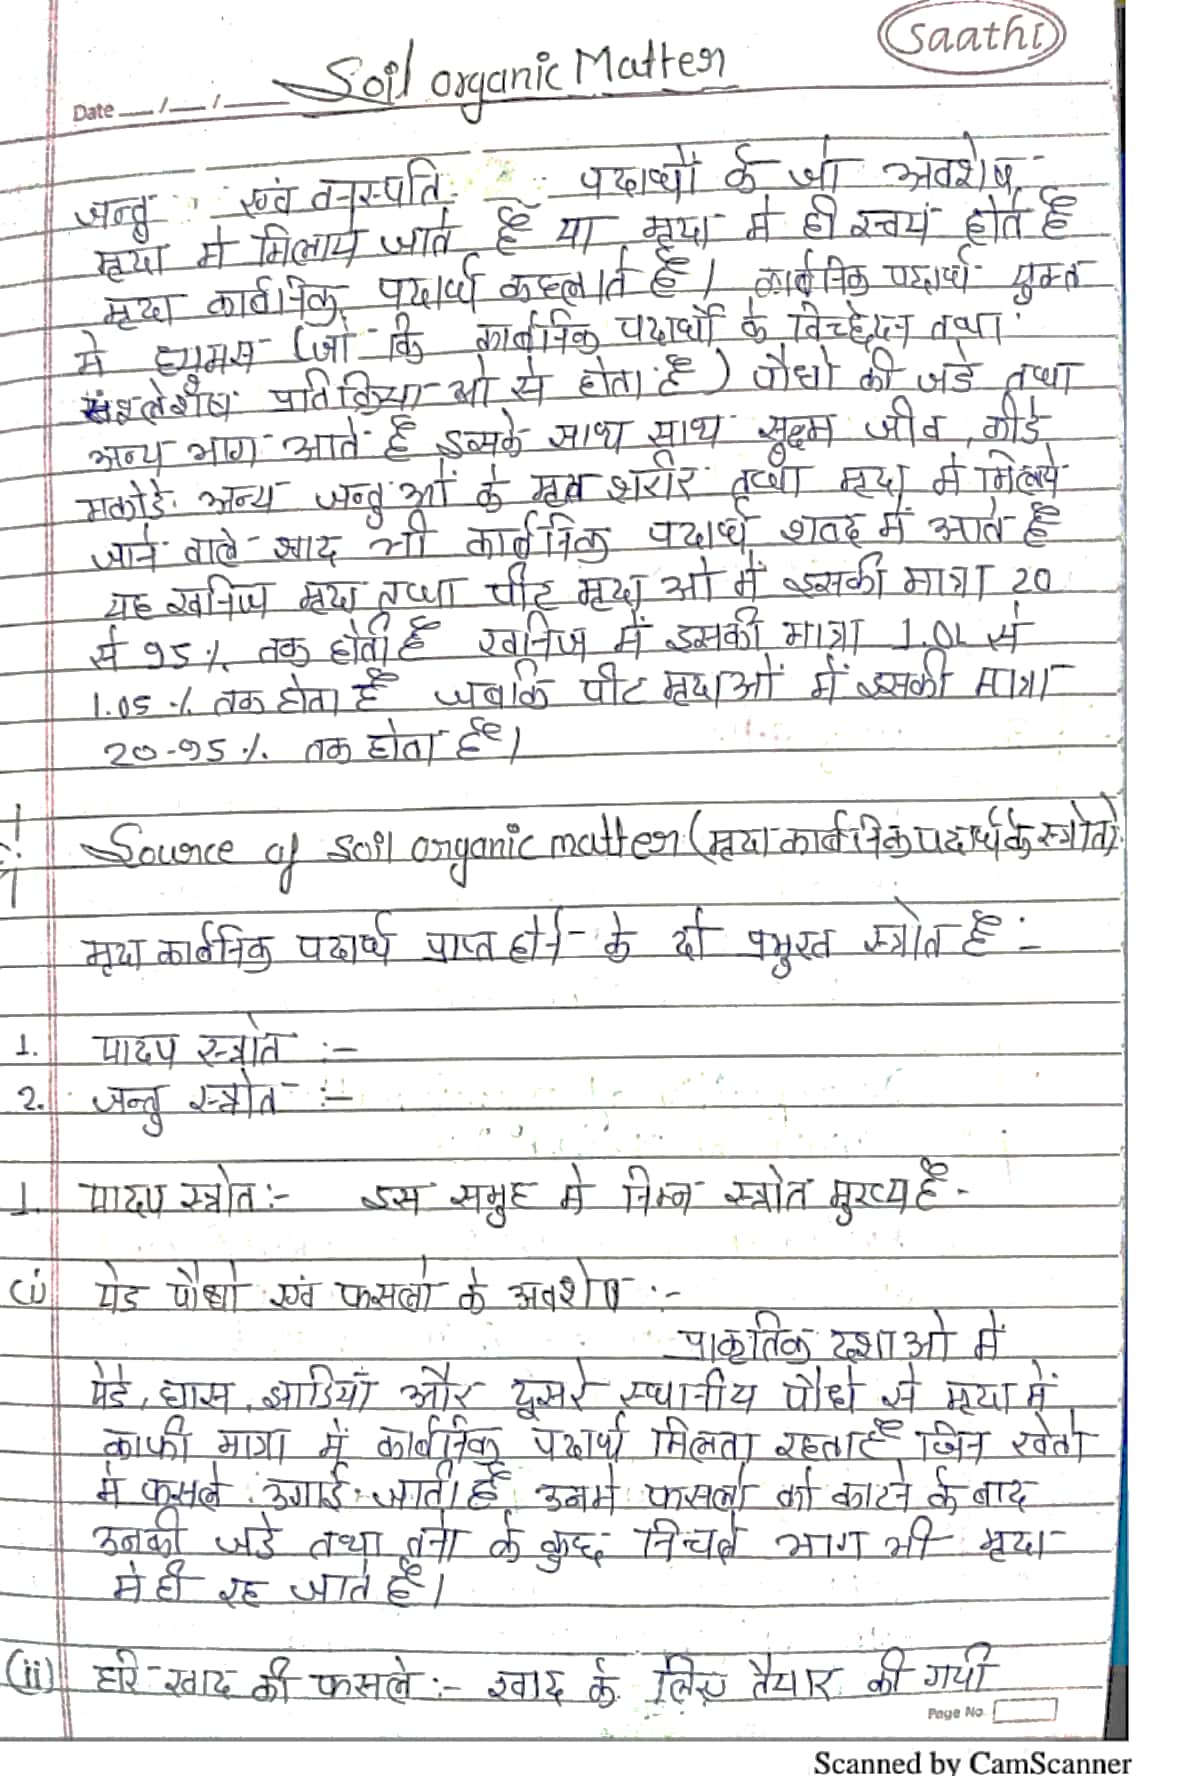 Saathi
Soil organic Matter
Date __/__/__
जन्तु एवं वनस्पति पदार्थो के जो अवशेष
मृदा मे मिलाये जाते है या मृदा मे ही स्वयं होते है
मृदा कार्बनिक पदार्थ कहलाते है। कार्बनिक पदार्थ युक्त
मे ह्यूमस (जो कि कार्बनिक पदार्थो के विच्छेदन तथा
संश्लेशण प्रतिक्रिया ओ से होता है) पौधो की जडे तथा
अन्य भाग आते है इसके साथ साथ सूक्ष्म जीव, कीडे
मकोडे अन्य जन्तुओं के मृत शरीर तथा मृदा मे मिलाये
जाने वाले खाद भी कार्बनिक पदार्थ शब्द में आते है
यह खनिज मृदा तथा पीट मृदा ओ में इसकी मात्रा 20
से 95 % तक होती है खनिज में इसकी मात्रा 1.01 से
1.05 % तक होता है जबकि पीट मृदाओं में इसकी मात्रा
20-95 % तक होता है।
Source of soil organic matter (मृदा कार्बनिक पदार्थ के स्त्रोत)
मृदा कार्बनिक पदार्थ प्राप्त होने के दो प्रमुख स्त्रोत है :-
1. पादप स्त्रोत :-
2. जन्तु स्त्रोत :-
1. पादप स्त्रोत :- इस समुह मे निम्न स्त्रोत मुख्य है -
(i) पेड पौधो एवं फसलो के अवशेष :-
प्राकृतिक दशाओ में
पेडे, घास, झाडियाँ और दूसरे स्थानीय पौधो से मृदा में
काफी मात्रा में कार्बनिक पदार्थ मिलता रहता है जिन खेतो
मे फसले उगाई जाती है उनमे फसलो को काटने के बाद
उनकी जडे तथा तनो के कुछ निचले भाग भी मृदा
मे ही रह जाते है।
(ii) हरि खाद की फसले :- खाद के लिए तैयार की गयी
Page No.
Scanned by CamScanner